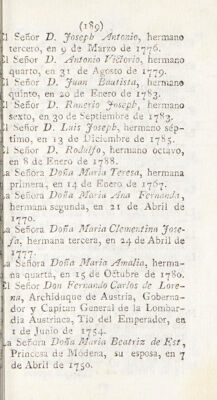 (189)
El Señor D. Joseph Antonio, hermano
tercero, en 9 de Marzo de 1776.
El Señor D. Antonio Victorio, hermano
quarto, en 31 de Agosto de 1779.
El Señor D. Juan Bautista, hermano
quinto, en 20 de Enero de 1783.
El Señor D. Ranerio Joseph, hermano
sexto, en 30 de Septiembre de 1783.
El Señor D. Luis Joseph, hermano sép-
timo, en 13 de Diciembre de 1785.
El Señor D. Rodulfo, hermano octavo,
en 8 de Enero de 1788.
La Señora Doña Maria Teresa, hermana
primera, en 14 de Enero de 1767.
La Señora Doña Maria Ana Fernanda,
hermana segunda, en 21 de Abril de
1770.
La Señora Doña Maria Clementina Jose-
fa, hermana tercera, en 24 de Abril de
1777.
La Señora Doña Maria Amalia, herma-
na quarta, en 15 de Octubre de 1780.
El Señor Don Fernando Carlos de Lore-
na, Archiduque de Austria, Goberna-
dor y Capitan General de la Lombar-
dia Austriaca, Tio del Emperador, en
1 de Junio de 1754.
La Señora Doña Maria Beatriz de Est,
Princesa de Modena, su esposa, en 7
de Abril de 1750.